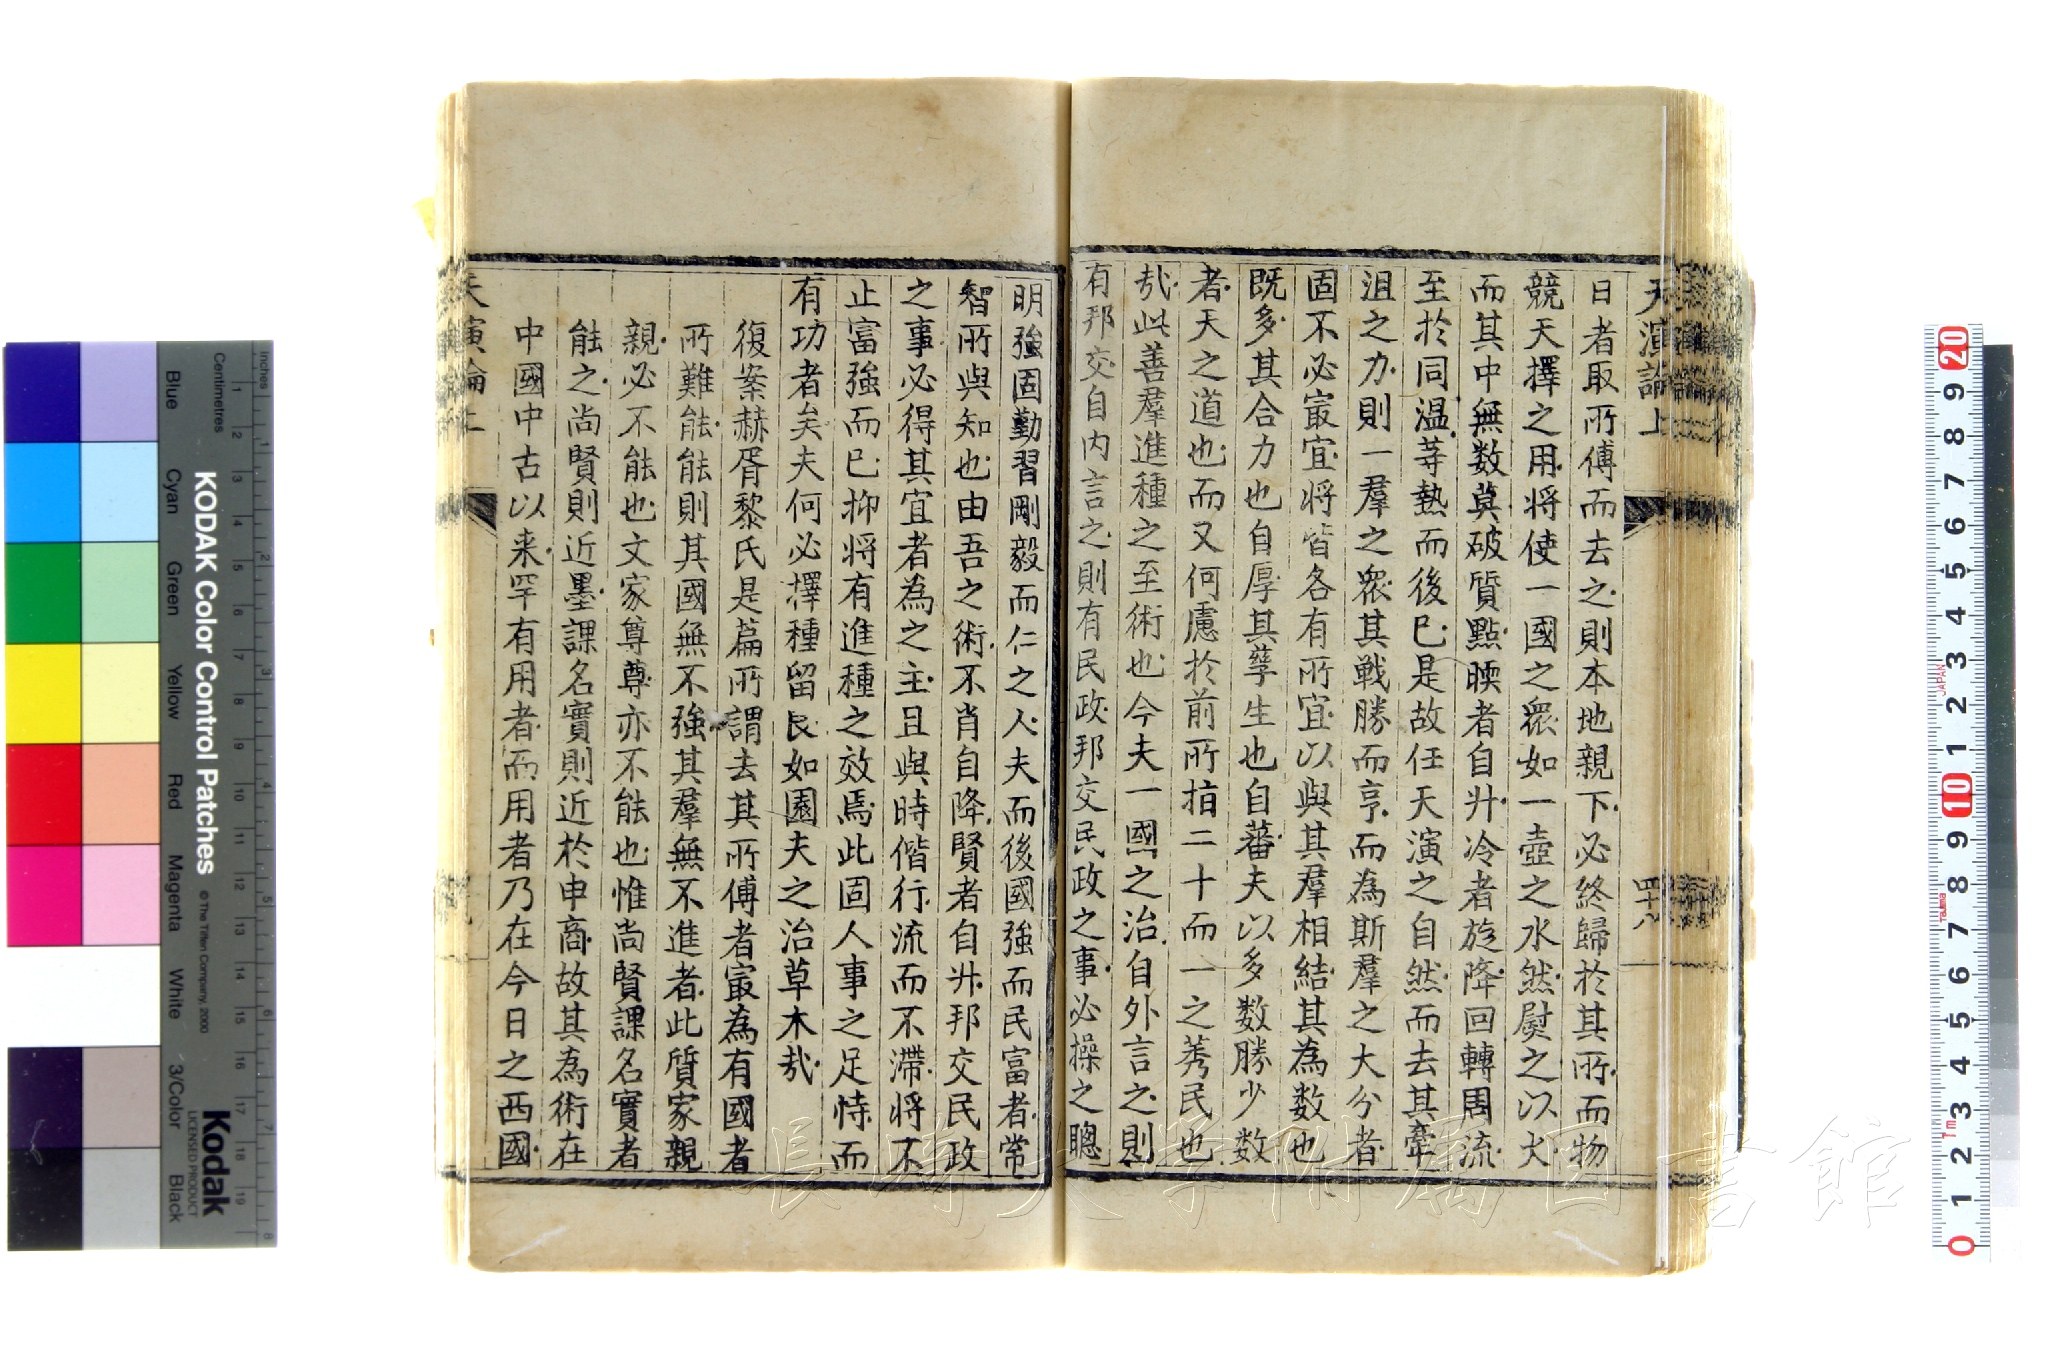 天演論上
四十八
日者取所傅而去之則本地親下必終歸於其所而物
競天擇之用將使一國之眾如一壺之水然熨之以火
而其中無数莫破質點暖者自升冷者旋降回轉周流
至於同温等熱而後已是故任天演之自然而去其牽
沮之力則一羣之眾其戰勝而亨而為斯羣之大分者
固不必寂宜将皆各有所宜以與其羣相結其為数也
既多其合力也自厚其孳生也自蕃夫以多数勝少数
者天之道也而又何慮於前所指二十而一之莠民也
㦲此善羣進種之至術也今夫一國之治自外言之則
有邦交自内言之則有民政邦交民政之事必操之聰
明強固勤習剛毅而仁之人夫而後國強而民富者常
智所與知也由吾之術不肖自降賢者自升邦交民政
之事必得其宜者為之主且與時偕行流而不滯將不
止富強而已抑将有進種之效焉此固人事之足恃而
有功者矣夫何必擇種留良如園夫之治草木㦲
復案赫胥黎氏是篇所謂去其所傅者寂為有國者
所難能能則其國無不強其羣無不進者此質家親
親必不能也文家尊尊亦不能也惟尚賢課名實者
能之尚賢則近墨課名實則近於申商故其為術在
中國中古以来罕有用者而用者乃在今日之西國
天演論上
長崎大学附属図書館
KODAK Color Control Patches
© The Tiffen Company, 2000
Kodak
LICENSED PRODUCT
Blue Cyan Green Yellow Red Magenta White 3/Color Black
Centimetres
Inches
JAPAN